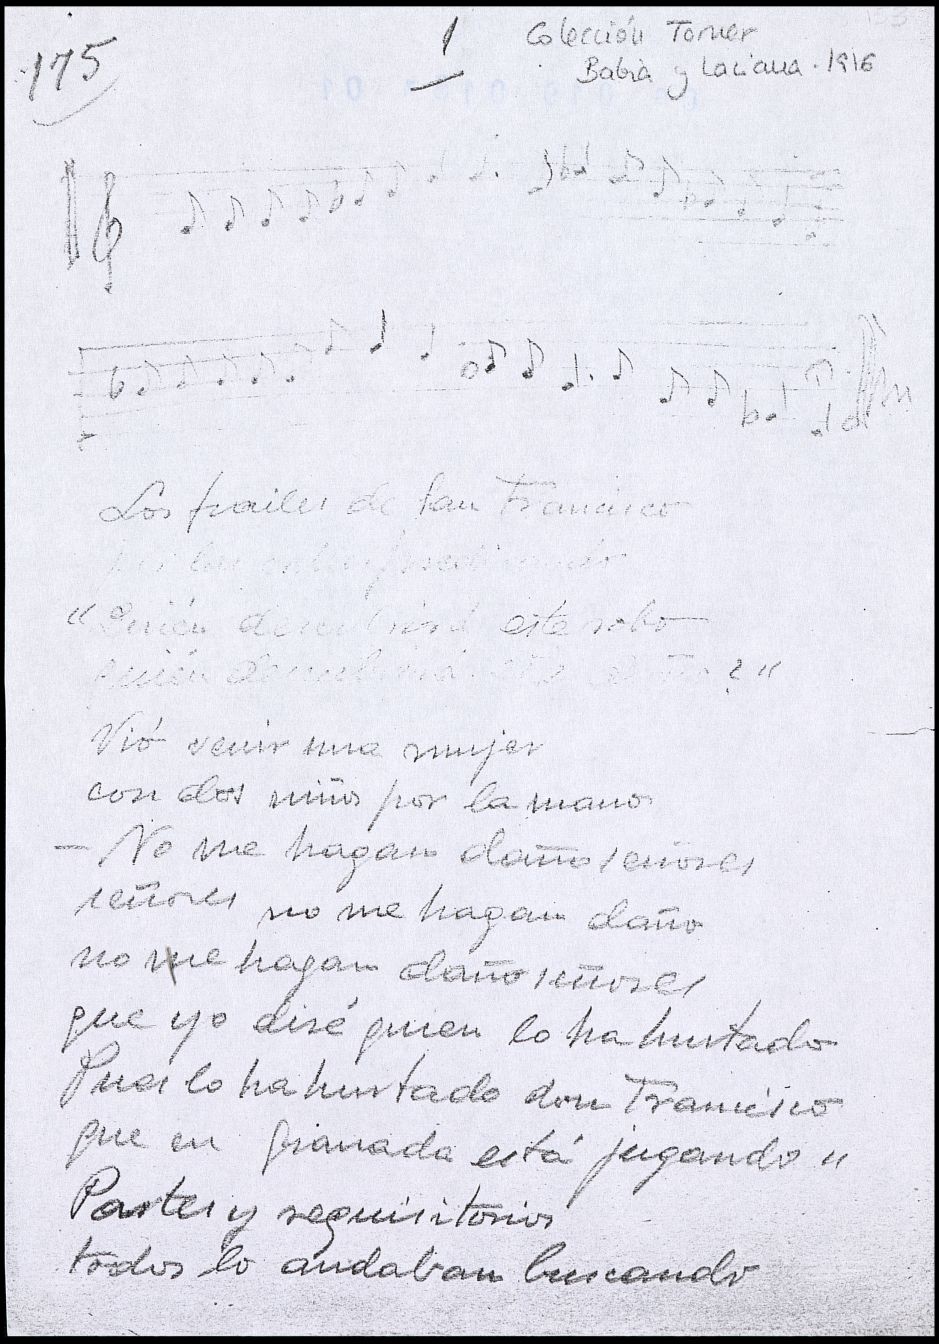 175
1
Colección Torner
Babia y Laciana. 1916
Los frailes de San Francisco
"Quién descubrirá este robo
quién descubrirá este ?"
Vió venir una mujer
con dos niños por la mano
– No me hagan daño señores
señores no me hagan daño
no me hagan daño señores
que yo diré quien lo ha hurtado
Pues lo ha hurtado don Francisco
que en Granada está jugando"
Partes y requisitorios
todos lo andaban buscando